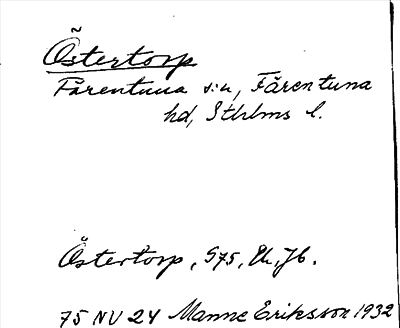 Östertorp
Färentuna s:n, Färentuna
hd, Sthlms l.
Östertorp, G75, Ek, Jb.
75 NV 24 Manne Eriksson 1932